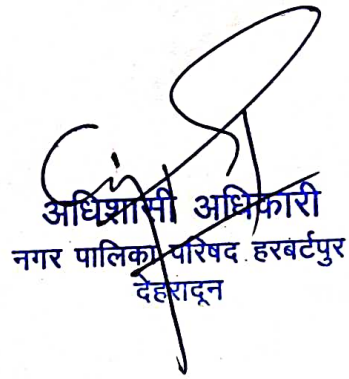 अधिशासी अधिकारी
नगर पालिका परिषद हरबर्टपुर
देहरादून